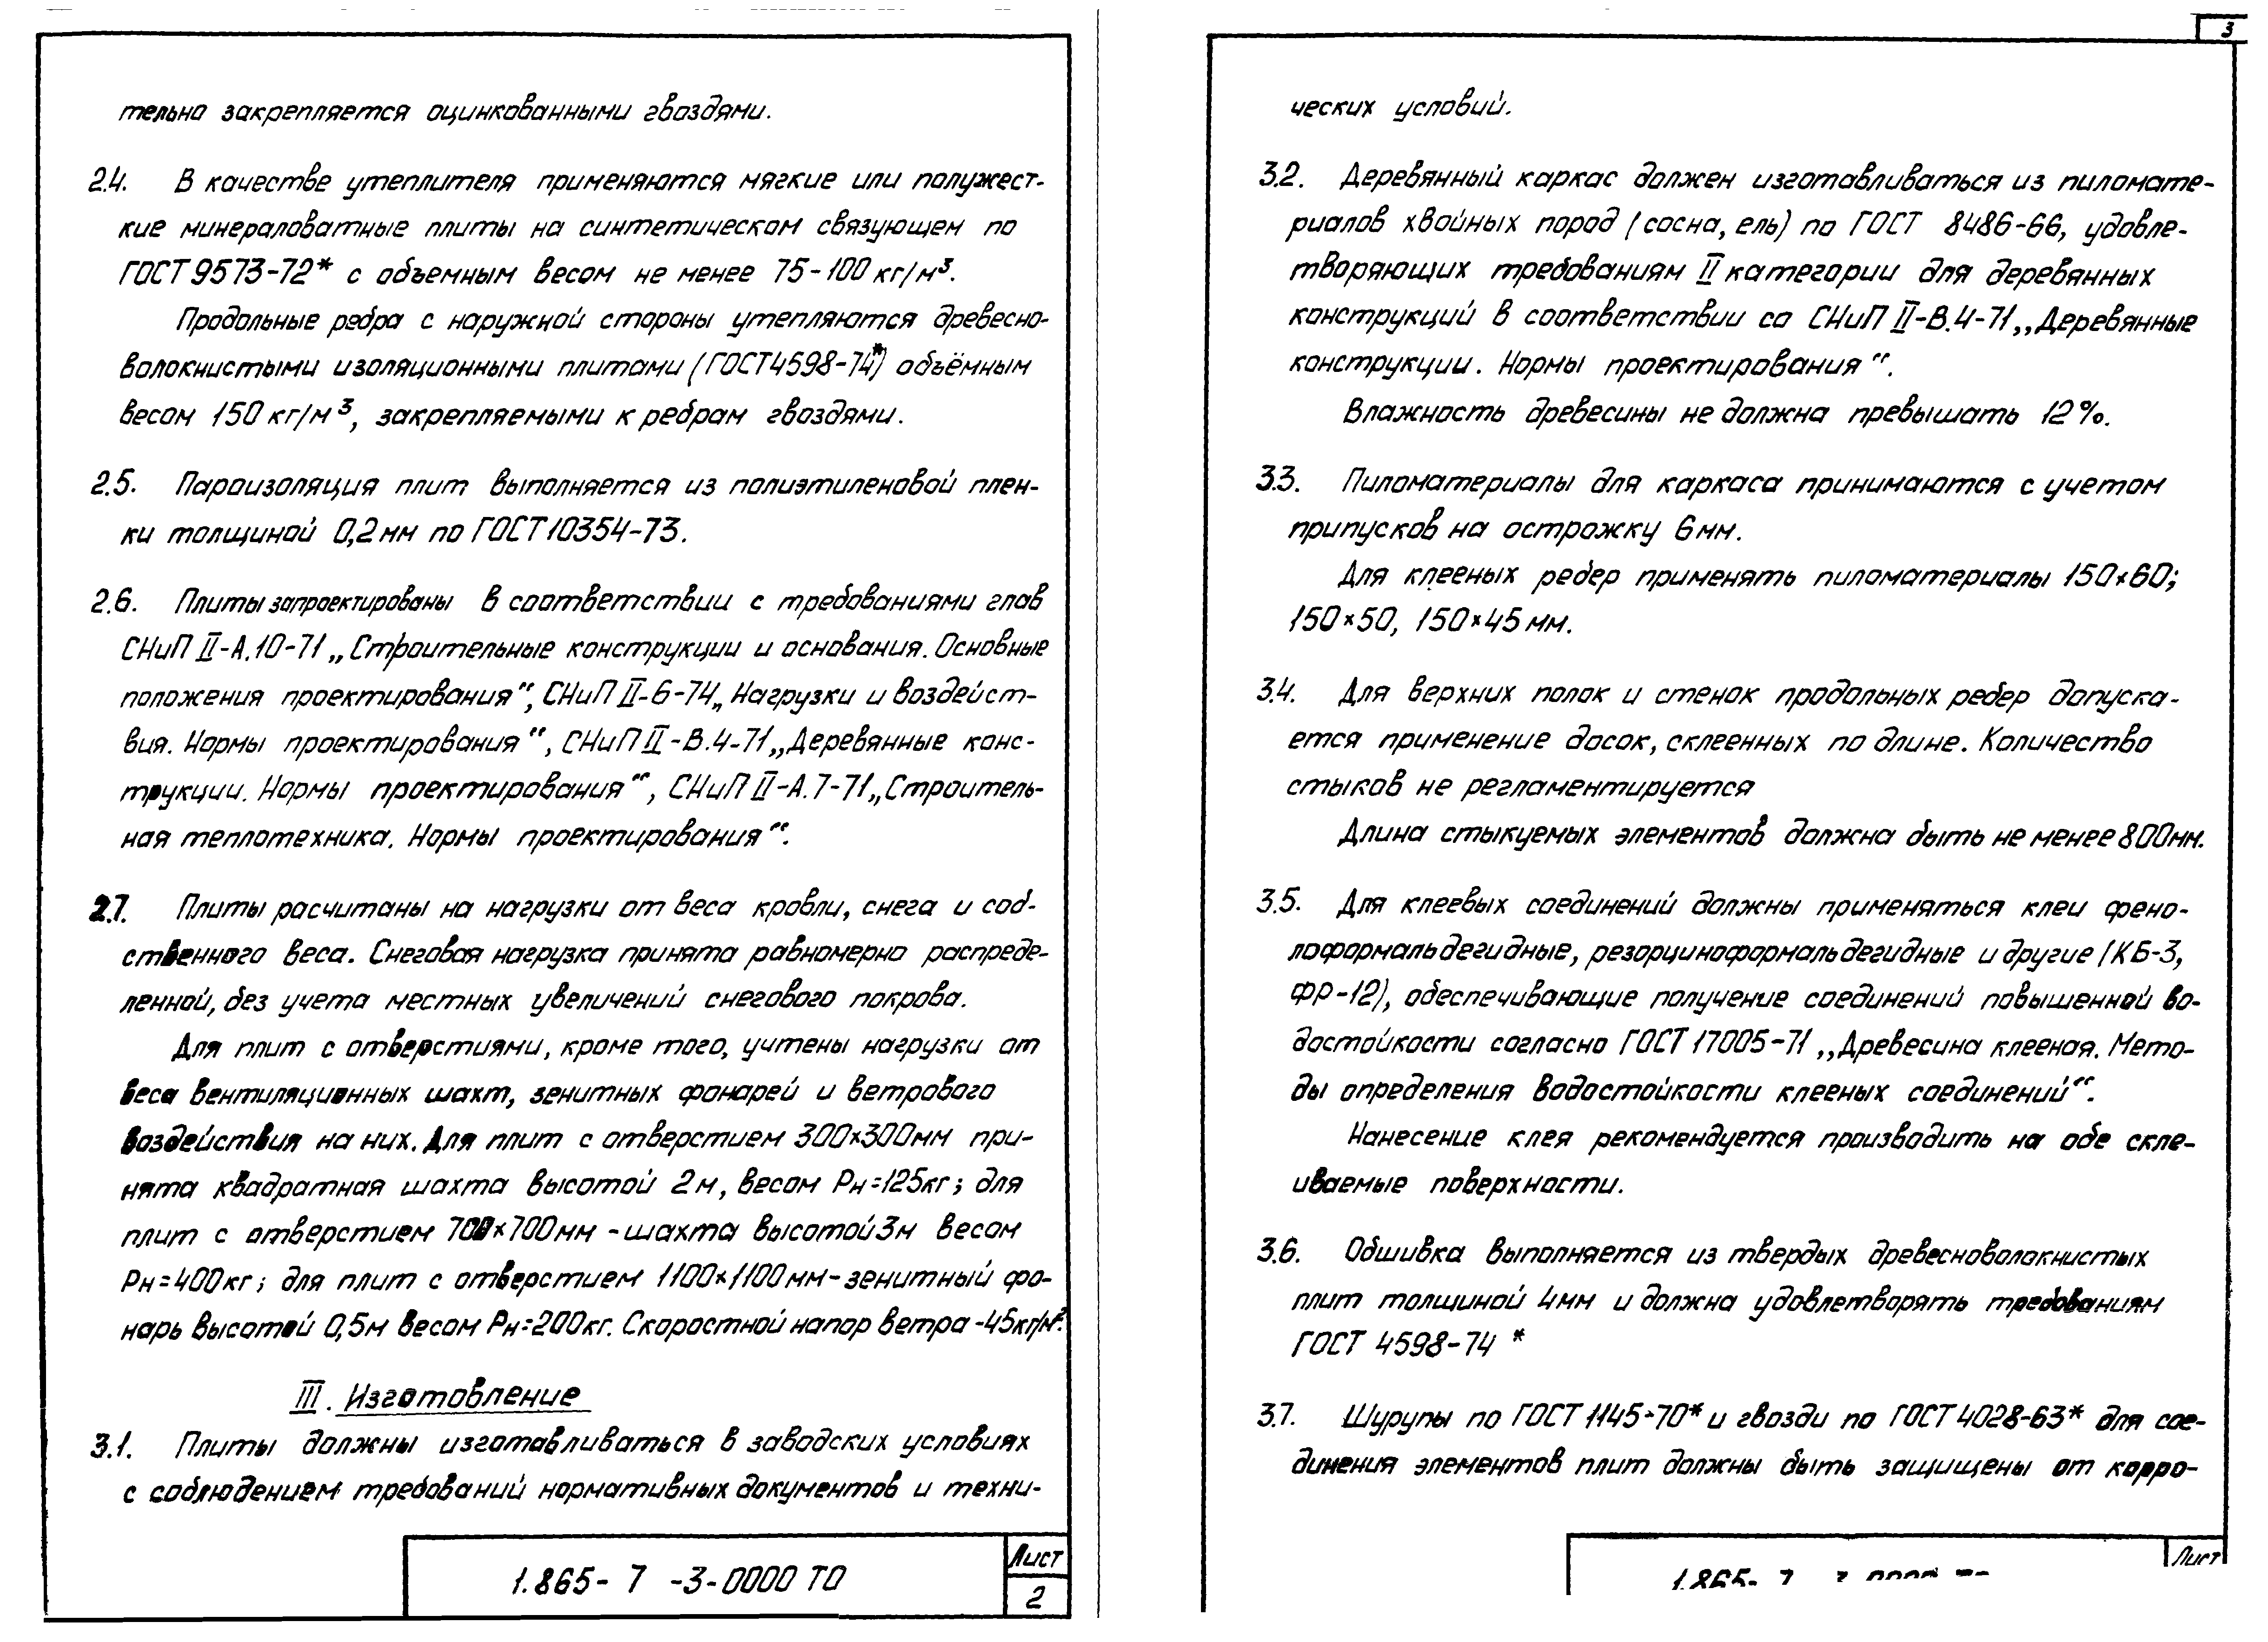 тельно закрепляется оцинкованными гвоздями.
2.4. В качестве утеплителя применяются мягкие или полужест-
кие минераловатные плиты на синтетическом связующем по
ГОСТ 9573-72* с объемным весом не менее 75-100 кг/м³.
Продольные ребра с наружной стороны утепляются древесно-
волокнистыми изоляционными плитами (ГОСТ4598-74*) объёмным
весом 150 кг/м³, закрепляемыми к ребрам гвоздями.
2.5. Пароизоляция плит выполняется из полиэтиленовой плен-
ки толщиной 0,2 мм по ГОСТ 10354-73.
2.6. Плиты запроектированы в соответствии с требованиями глав
СНиП II-А.10-71 „Строительные конструкции и основания. Основные
положения проектирования“, СНиП II-6-74 „Нагрузки и воздейст-
вия. Нормы проектирования“, СНиП II-В.4-71 „Деревянные конс-
трукции. Нормы проектирования“, СНиП II-А.7-71 „Строитель-
ная теплотехника. Нормы проектирования“.
2.7. Плиты расчитаны на нагрузки от веса кровли, снега и соб-
ственного веса. Снеговая нагрузка принята равномерно распреде-
ленной, без учета местных увеличений снегового покрова.
Для плит с отверстиями, кроме того, учтены нагрузки от
веса вентиляционных шахт, зенитных фонарей и ветрового
воздействия на них. Для плит с отверстием 300×300мм при-
нята квадратная шахта высотой 2 м, весом Рн=125кг; для
плит с отверстием 700×700 мм - шахта высотой 3м весом
Рн=400кг; для плит с отверстием 1100×1100 мм - зенитный фо-
нарь высотой 0,5м весом Рн=200кг. Скоростной напор ветра -45кг/м².
III. Изготовление
3.1. Плиты должны изготавливаться в заводских условиях
с соблюдением требований нормативных документов и техни-
1.865- 7 -3-0000 ТО
Лист
2
3
ческих условий.
3.2. Деревянный каркас должен изготавливаться из пиломате-
риалов хвойных пород (сосна, ель) по ГОСТ 8486-66, удовле-
творяющих требованиям II категории для деревянных
конструкций в соответствии со СНиП II-В.4-71 „Деревянные
конструкции. Нормы проектирования“.
Влажность древесины не должна превышать 12%.
3.3. Пиломатериалы для каркаса принимаются с учетом
припусков на острожку 6мм.
Для клееных ребер применять пиломатериалы 150×60;
150×50, 150×45 мм.
3.4. Для верхних полок и стенок продольных ребер допуска-
ется применение досок, склеенных по длине. Количество
стыков не регламентируется
Длина стыкуемых элементов должна быть не менее 800мм.
3.5. Для клеевых соединений должны применяться клеи фено-
лоформальдегидные, резорциноформальдегидные и другие (КБ-3,
ФР-12), обеспечивающие получение соединений повышенной во-
достойкости согласно ГОСТ 17005-71 „Древесина клееная. Мето-
ды определения водостойкости клееных соединений“.
Нанесение клея рекомендуется производить на обе скле-
иваемые поверхности.
3.6. Обшивка выполняется из твердых древесноволокнистых
плит толщиной 4мм и должна удовлетворять требованиям
ГОСТ 4598-74 *
3.7. Шурупы по ГОСТ 1145-70* и гвозди по ГОСТ 4028-63* для сое-
динения элементов плит должны быть защищены от корро-
Лист